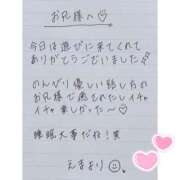 お兄様へ♡
今日は遊びに来てくれて
ありがとうございました♡
のんびり優しい話し方の
お兄様で癒されたしイチャ
イチャ楽しかった〜♡
睡眠大事だね！笑
えまより☺